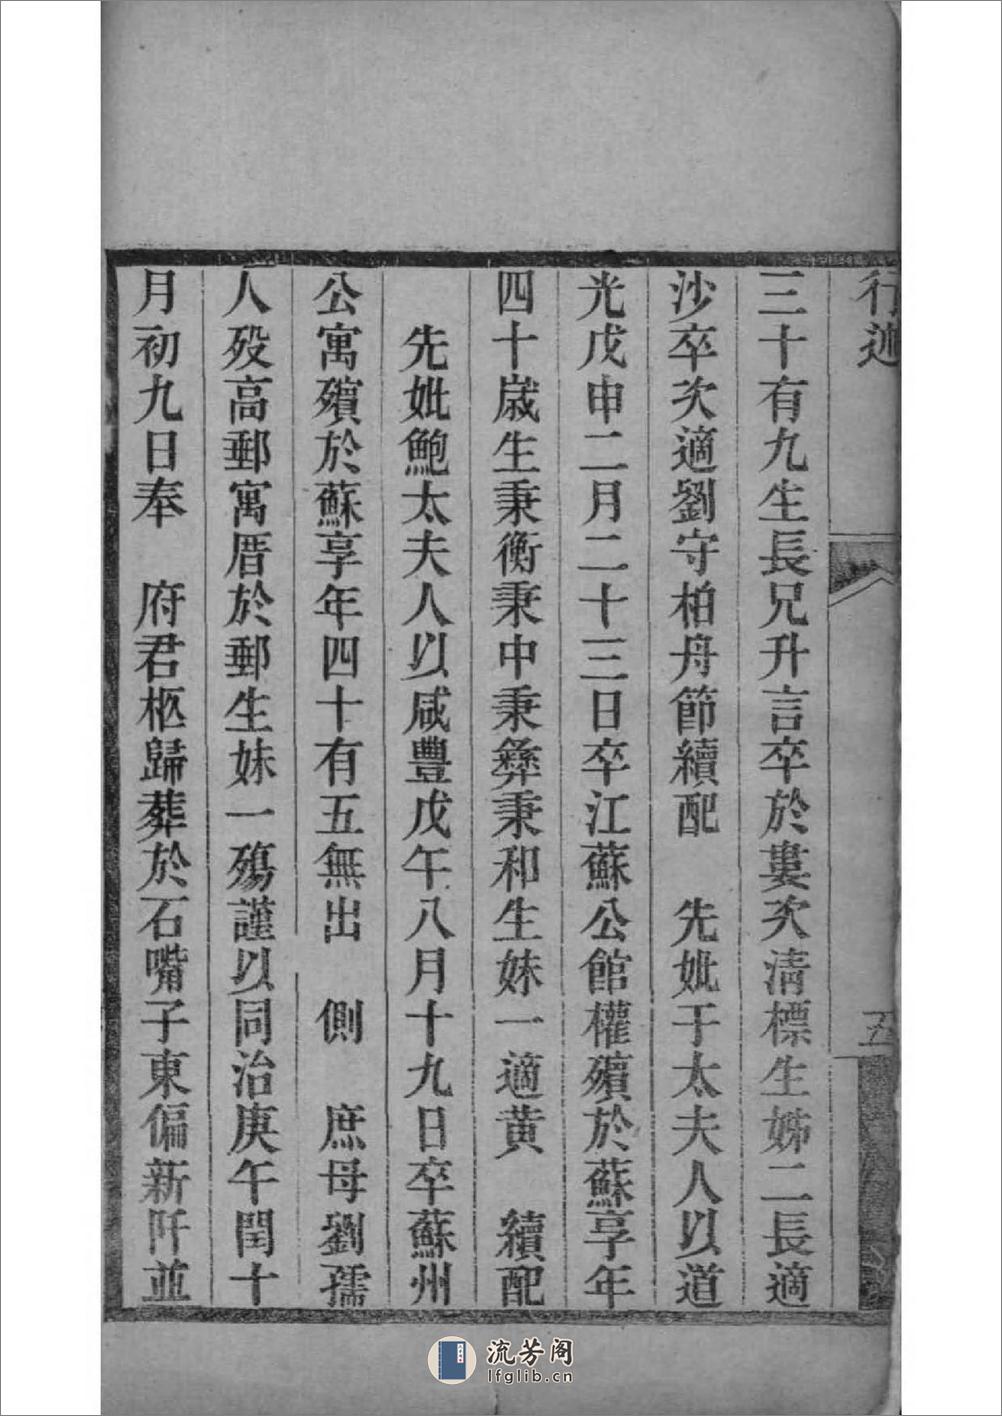 行述
五
三十有九生長兄升言卒於婁次清標生姊二長適
沙卒次適劉守柏舟節續配　先妣于太夫人以道
光戊申二月二十三日卒江蘇公館權殯於蘇享年
四十歲生秉衡秉中秉彝秉和生妹一適黃　續配
先妣鮑太夫人以咸豐戊午八月十九日卒蘇州
公寓殯於蘇享年四十有五無出　側　庶母劉孺
人歿高郵寓厝於郵生妹一殤謹以同治庚午閏十
月初九日奉　府君柩歸葬於石嘴子東偏新阡並
流芳阁
lfglib.cn